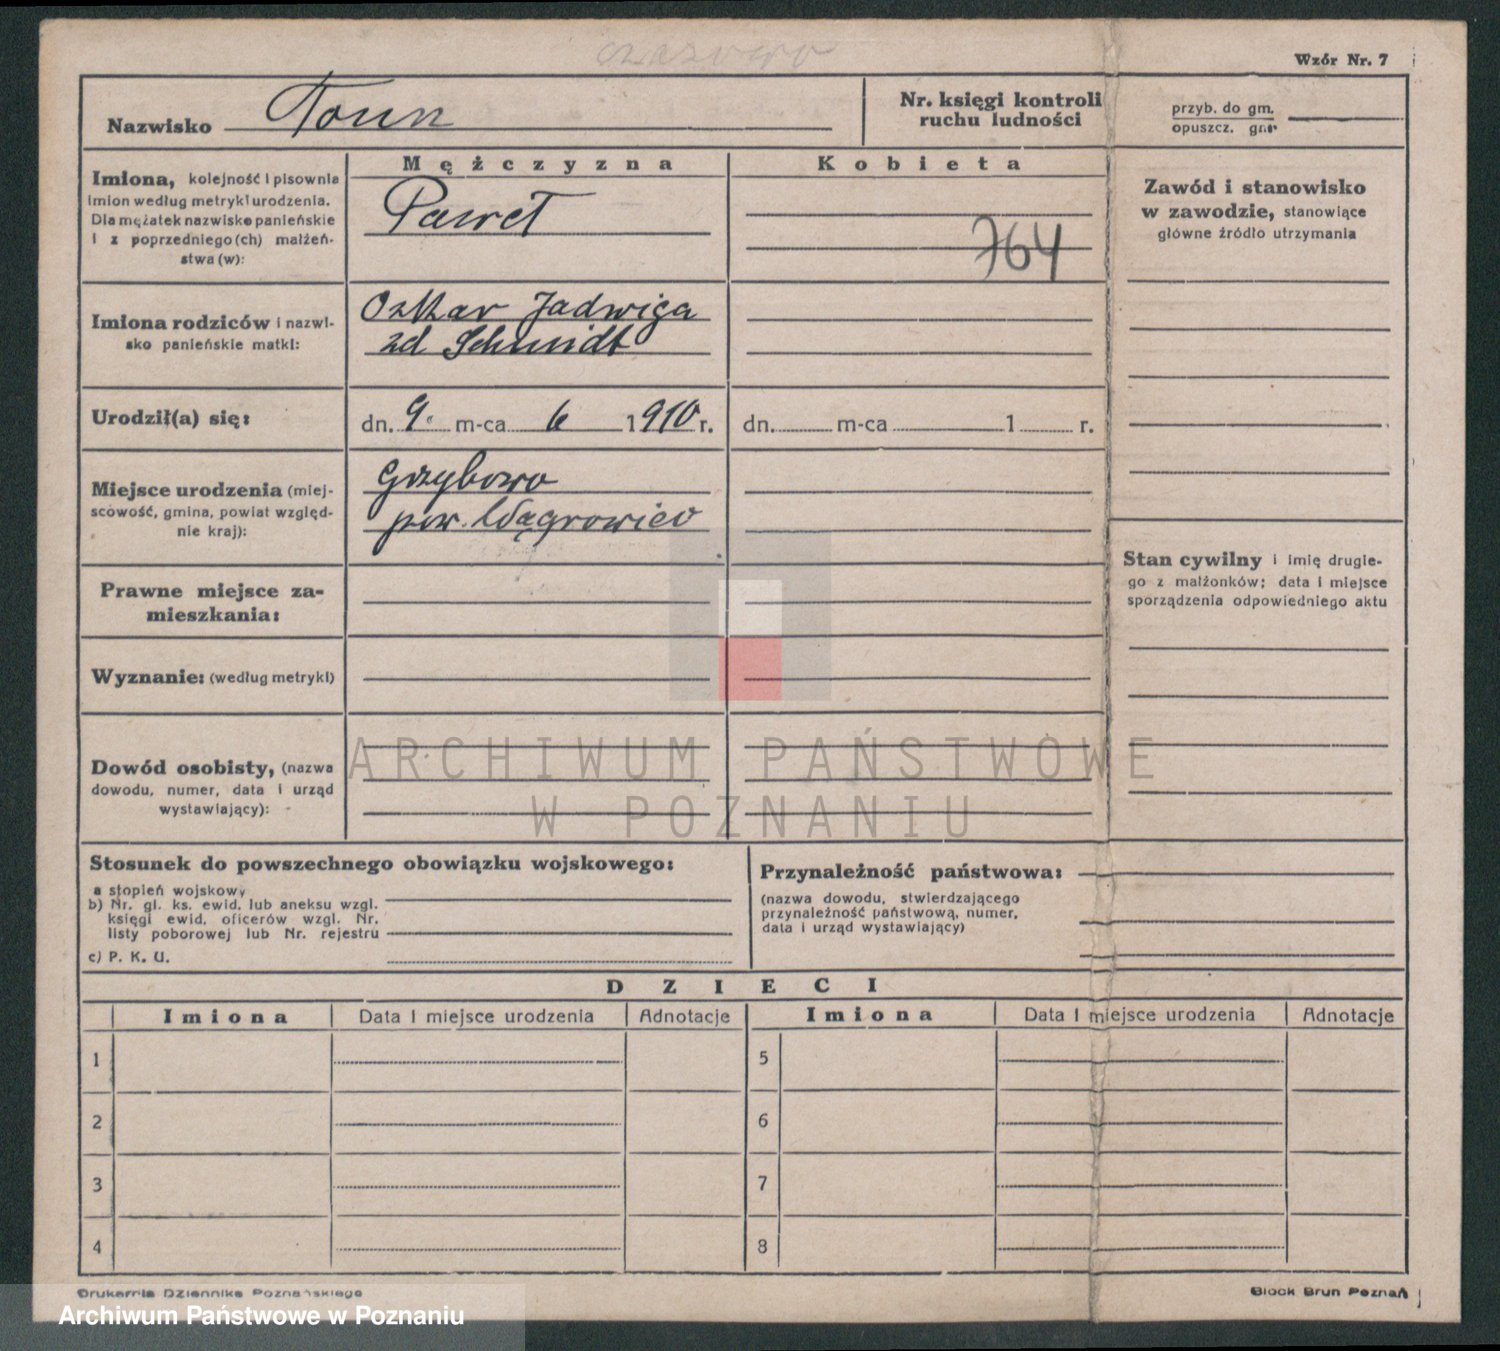 czasowo
Wzór Nr. 7
Nazwisko Toun
Nr. księgi kontroli
ruchu ludności
przyb. do gm.
opuszcz. gm.
Mężczyzna
Kobieta
Imiona, kolejność i pisownia
imion według metryki urodzenia.
Dla mężatek nazwisko panieńskie
i z poprzedniego(ch) małżeń-
stwa(w):
Paweł
764
Zawód i stanowisko
w zawodzie, stanowiące
główne źródło utrzymania
Imiona rodziców i nazwi-
sko panieńskie matki:
Ozkar Jadwiga
zd Schmidt
Urodził(a) się:
dn. 9. m-ca 6 1910 r.
dn. m-ca 1 r.
Miejsce urodzenia (miej-
scowość, gmina, powiat względ-
nie kraj):
Grzybowo
pow. Wągrowiec
Stan cywilny i imię drugie-
go z małżonków; data i miejsce
sporządzenia odpowiedniego aktu
Prawne miejsce za-
mieszkania:
Wyznanie: (według metryki)
Dowód osobisty, (nazwa
dowodu, numer, data i urząd
wystawiający):
ARCHIWUM PAŃSTWOWE
W POZNANIU
Stosunek do powszechnego obowiązku wojskowego:
a stopień wojskowy
b) Nr. gl. ks. ewid. lub aneksu wzgl.
księgi ewid. oficerów wzgl. Nr.
listy poborowej lub Nr. rejestru
c) P. K. U.
Przynależność państwowa:
(nazwa dowodu, stwierdzającego
przynależność państwową, numer,
data i urząd wystawiający)
DZIECI
Imiona Data i miejsce urodzenia Adnotacje Imiona Data i miejsce urodzenia Adnotacje
1 5
2 6
3 7
4 8
Drukarnia Dziennika Poznańskiego
Block Brun Poznań
Archiwum Państwowe w Poznaniu